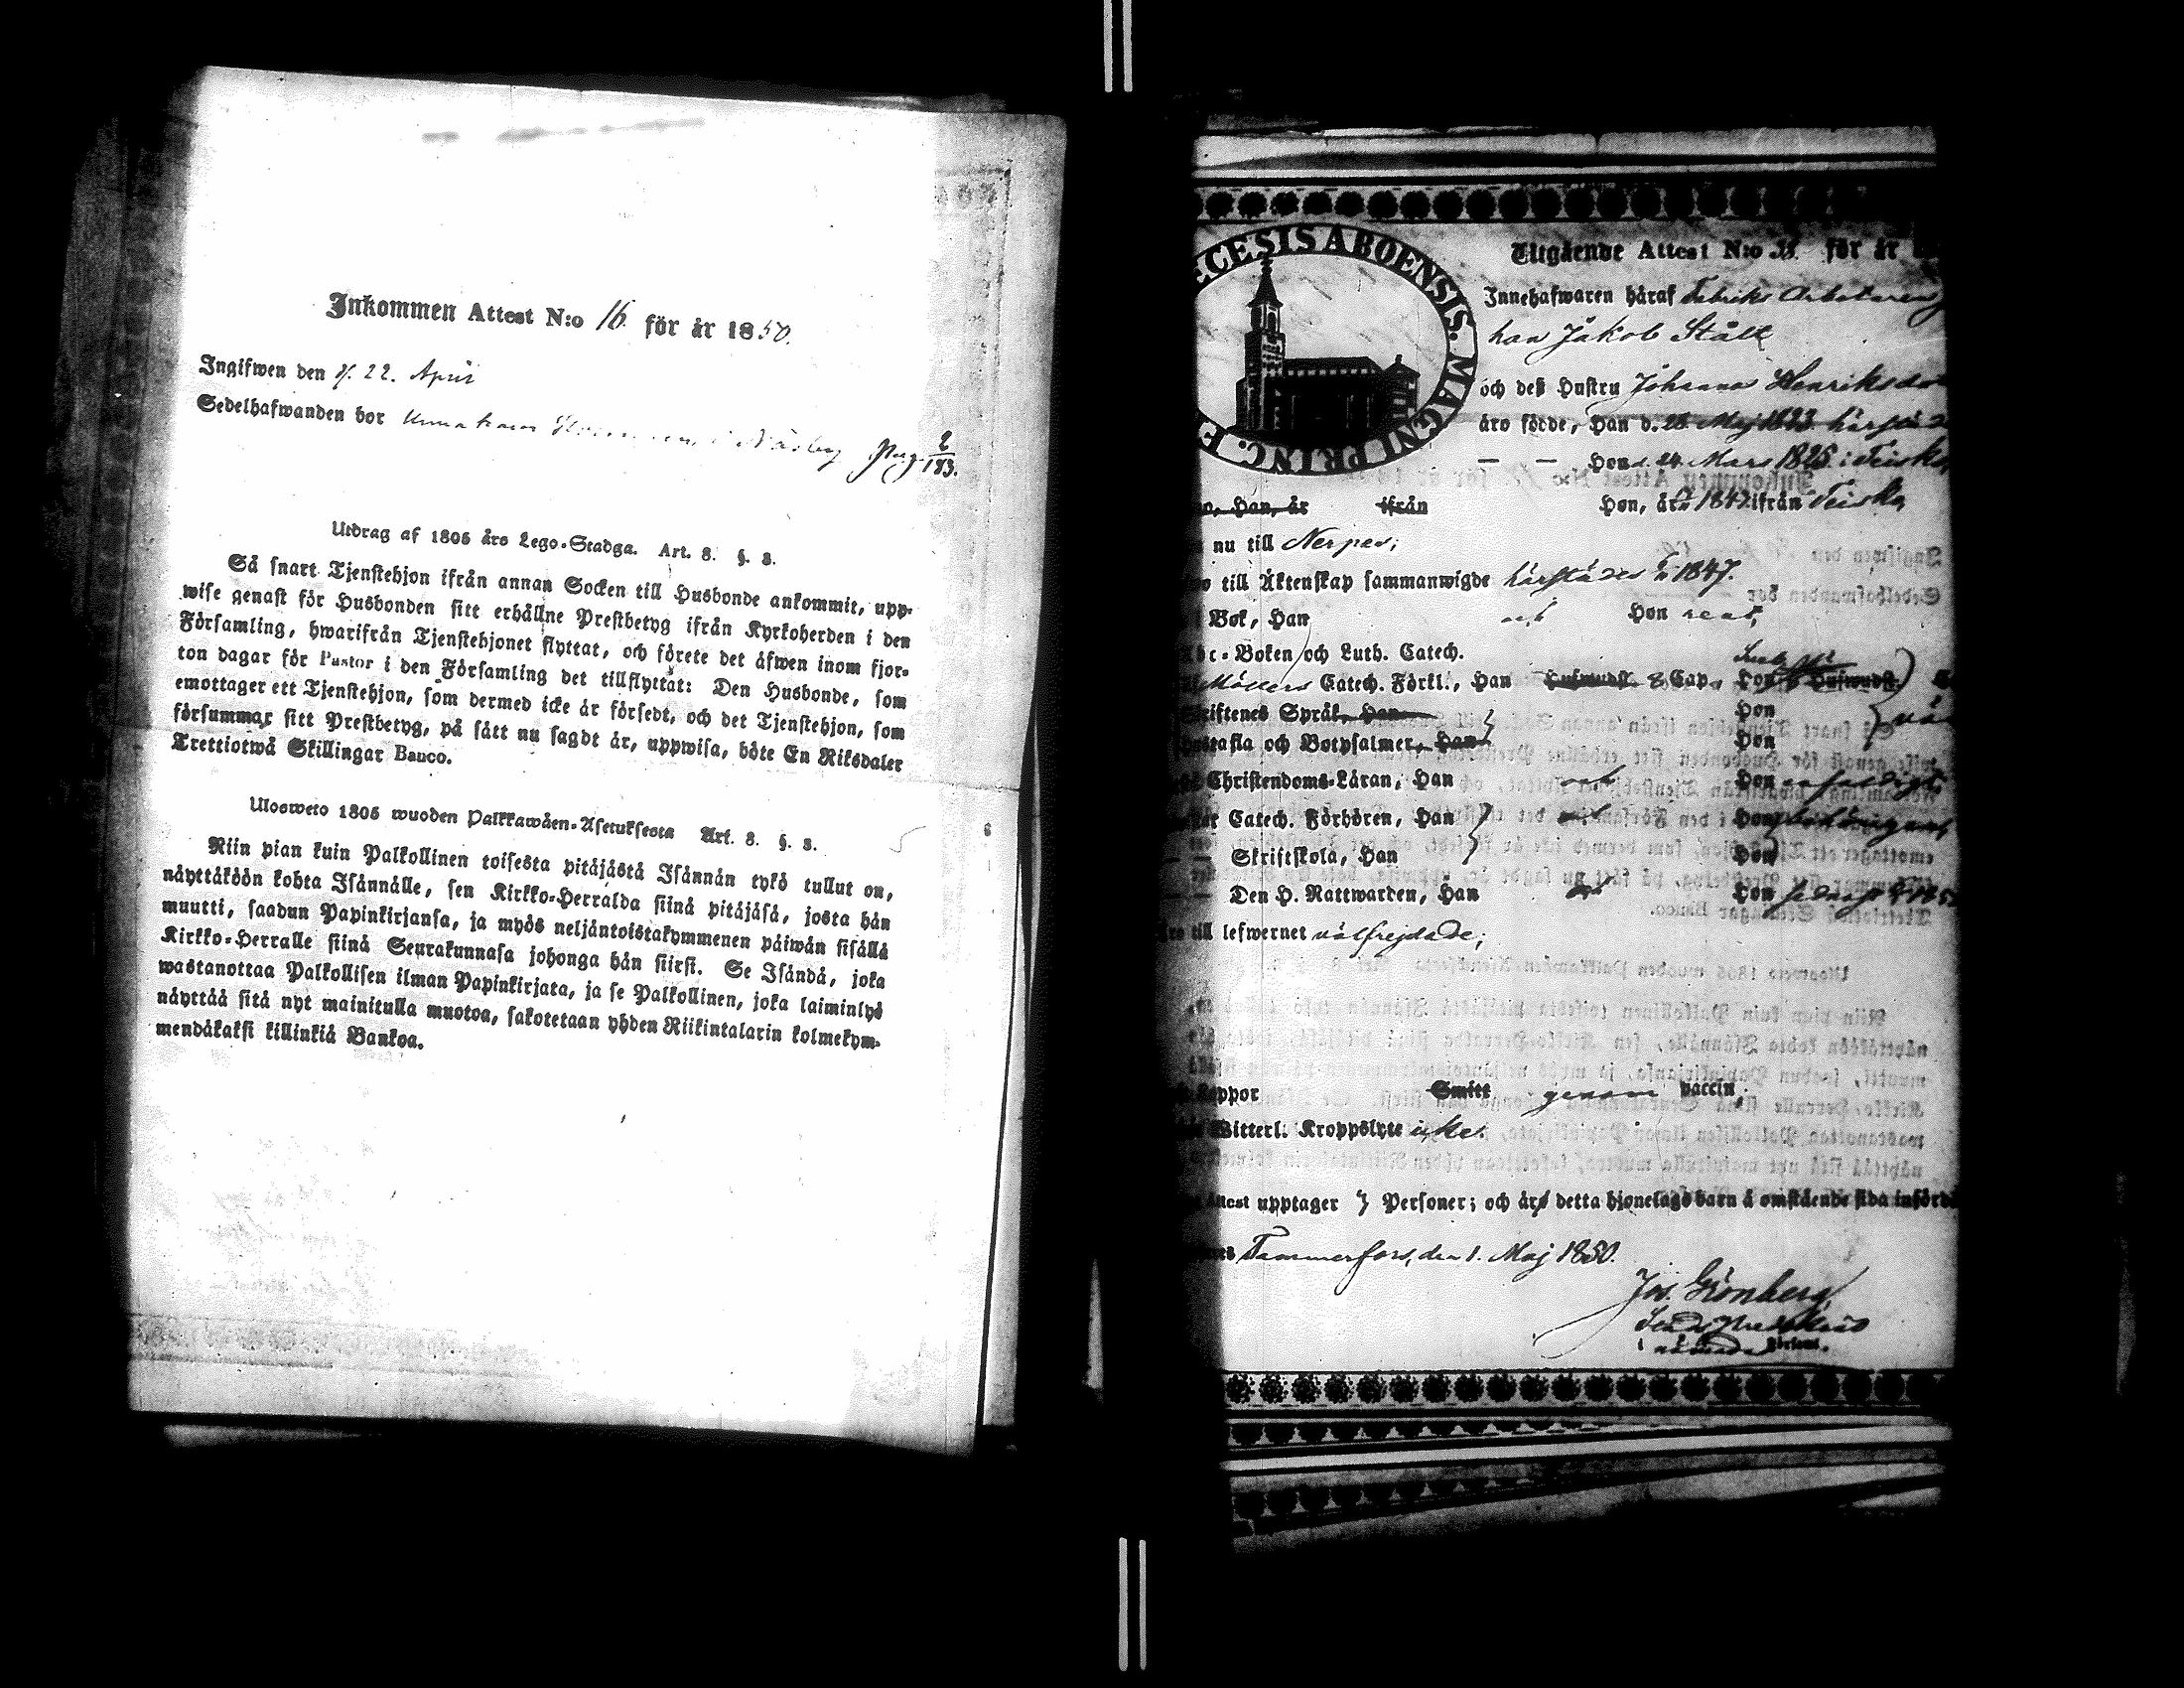 Inkommen Attest N:o 16 för år 1850.
Ingifwen den 22. April
Sedelhafwanden bor
Pag. 2/183.
Utdrag af 1805 års Lego-Stadga. Art. 8. §. 8.
Så snart Tjenstehjon ifrån annan Socken till Husbonde ankommit, upp-
wise genast för Husbonden sitt erhållne Prestbetyg ifrån Kyrkoherden i den
Församling, hwarifrån Tjenstehjonet flyttat, och förete det äfwen inom fjor-
ton dagar för Pastor i den Församling det tillflyttat: Den Husbonde, som
emottager ett Tjenstehjon, som dermed icke är försedt, och det Tjenstehjon, som
försummar sitt Prestbetyg, på sätt nu sagdt är, uppwisa, böte En Riksdaler
Trettiotwå Skillingar Banco.
Ulosweto 1805 wuoden Palkkawäen-Asetuksesta Art. 8. §. 8.
Niin pian kuin Palkollinen toisesta pitäjästä Isännän tykö tullut on,
näyttäköön kohta Isännälle, sen Kirkko-Herralda siinä pitäjäsä, josta hän
muutti, saadun Papinkirjansa, ja myös neljäntoistakymmenen päiwän sisällä
Kirkko-Herralle siinä Seurakunnasa johonga hän siirsi. Se Isändä, joka
wastanottaa Palkollisen ilman Papinkirjata, ja se Palkollinen, joka laiminlyö
näyttää sitä nyt mainitulla muotoa, sakotetaan yhden Riikintalarin kolmekym-
mendäkaksi killinkiä Bankoa.
ECESIS ABOENSIS. MAGNI PRINC. F
Utgående Attest N:o 33. för år
Innehafwaren häraf Fabriks Arbetaren
han Jakob Ståll
och deß Hustru Johanna Henriksdo
äro födde, Han d. 28 Maj 1823 härstäd
— — Hon d. 24 Mars 1825 i Teisko,
Han, år ifrån Hon, år 1847 ifrån Teisko,
nu till Nerpes;
till Äktenskap sammanwigde härstädes 1847.
Bok, Han Hon
bc-Boken och Luth. Catech.
Möllers Catech. Förkl., Han Cap, Hon
kriftenes Språk, Han Hon
ustafla och Botpsalmer, Han Hon
Christendoms-Läran, Han Hon
Catech. Förhören, Han Hon
— — Skriftskola, Han Hon
— — Den H. Nattwarden, Han Hon
till lefwernet wälfrejdade;
oppor Smitt genom vaccin;
Witterl. Kroppslyte icke.
Attest upptager Personer; och äro detta hjonelags barn å omstående sida införd
Tammerfors, den 1. Maj 1850.
Jos. Grönberg
i Församl.